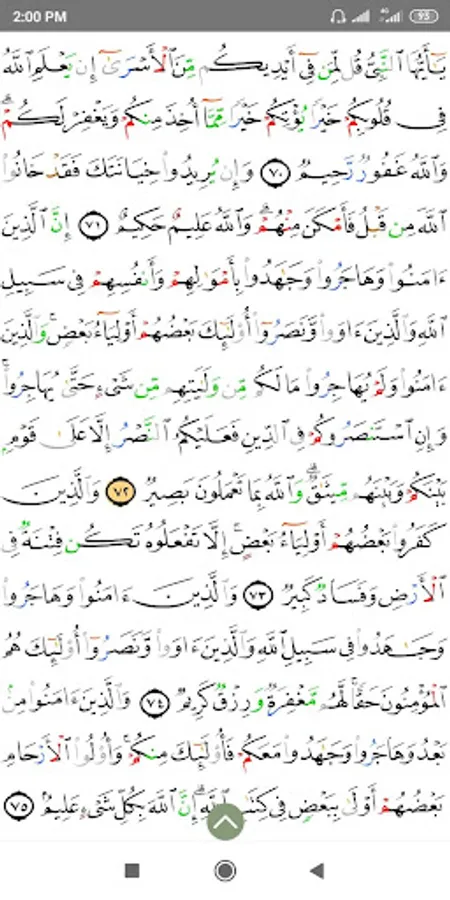 2:00 PM 4G 93
يَٰٓأَيُّهَا ٱلنَّبِىُّ قُل لِّمَن فِىٓ أَيْدِيكُم مِّنَ ٱلْأَسْرَىٰٓ إِن يَعْلَمِ ٱللَّهُ
فِى قُلُوبِكُمْ خَيْرًا يُؤْتِكُمْ خَيْرًا مِّمَّآ أُخِذَ مِنكُمْ وَيَغْفِرْ لَكُمْ ۗ
وَٱللَّهُ غَفُورٌ رَّحِيمٌ ٧٠ وَإِن يُرِيدُوا۟ خِيَانَتَكَ فَقَدْ خَانُوا۟
ٱللَّهَ مِن قَبْلُ فَأَمْكَنَ مِنْهُمْ ۗ وَٱللَّهُ عَلِيمٌ حَكِيمٌ ٧١ إِنَّ ٱلَّذِينَ
ءَامَنُوا۟ وَهَاجَرُوا۟ وَجَٰهَدُوا۟ بِأَمْوَٰلِهِمْ وَأَنفُسِهِمْ فِى سَبِيلِ
ٱللَّهِ وَٱلَّذِينَ ءَاوَوا۟ وَّنَصَرُوٓا۟ أُو۟لَٰٓئِكَ بَعْضُهُمْ أَوْلِيَآءُ بَعْضٍ ۚ وَٱلَّذِينَ
ءَامَنُوا۟ وَلَمْ يُهَاجِرُوا۟ مَا لَكُم مِّن وَلَٰيَتِهِم مِّن شَىْءٍ حَتَّىٰ يُهَاجِرُوا۟ ۚ
وَإِنِ ٱسْتَنصَرُوكُمْ فِى ٱلدِّينِ فَعَلَيْكُمُ ٱلنَّصْرُ إِلَّا عَلَىٰ قَوْمٍۭ
بَيْنَكُمْ وَبَيْنَهُم مِّيثَٰقٌ ۗ وَٱللَّهُ بِمَا تَعْمَلُونَ بَصِيرٌ ٧٢ وَٱلَّذِينَ
كَفَرُوا۟ بَعْضُهُمْ أَوْلِيَآءُ بَعْضٍ ۚ إِلَّا تَفْعَلُوهُ تَكُن فِتْنَةٌ فِى
ٱلْأَرْضِ وَفَسَادٌ كَبِيرٌ ٧٣ وَٱلَّذِينَ ءَامَنُوا۟ وَهَاجَرُوا۟
وَجَٰهَدُوا۟ فِى سَبِيلِ ٱللَّهِ وَٱلَّذِينَ ءَاوَوا۟ وَّنَصَرُوٓا۟ أُو۟لَٰٓئِكَ هُمُ
ٱلْمُؤْمِنُونَ حَقًّا ۚ لَّهُم مَّغْفِرَةٌ وَرِزْقٌ كَرِيمٌ ٧٤ وَٱلَّذِينَ ءَامَنُوا۟ مِنۢ
بَعْدُ وَهَاجَرُوا۟ وَجَٰهَدُوا۟ مَعَكُمْ فَأُو۟لَٰٓئِكَ مِنكُمْ ۚ وَأُو۟لُوا۟ ٱلْأَرْحَامِ
بَعْضُهُمْ أَوْلَىٰ بِبَعْضٍ فِى كِتَٰبِ ٱللَّهِ ۗ إِنَّ ٱللَّهَ بِكُلِّ شَىْءٍ عَلِيمٌۢ ٧٥